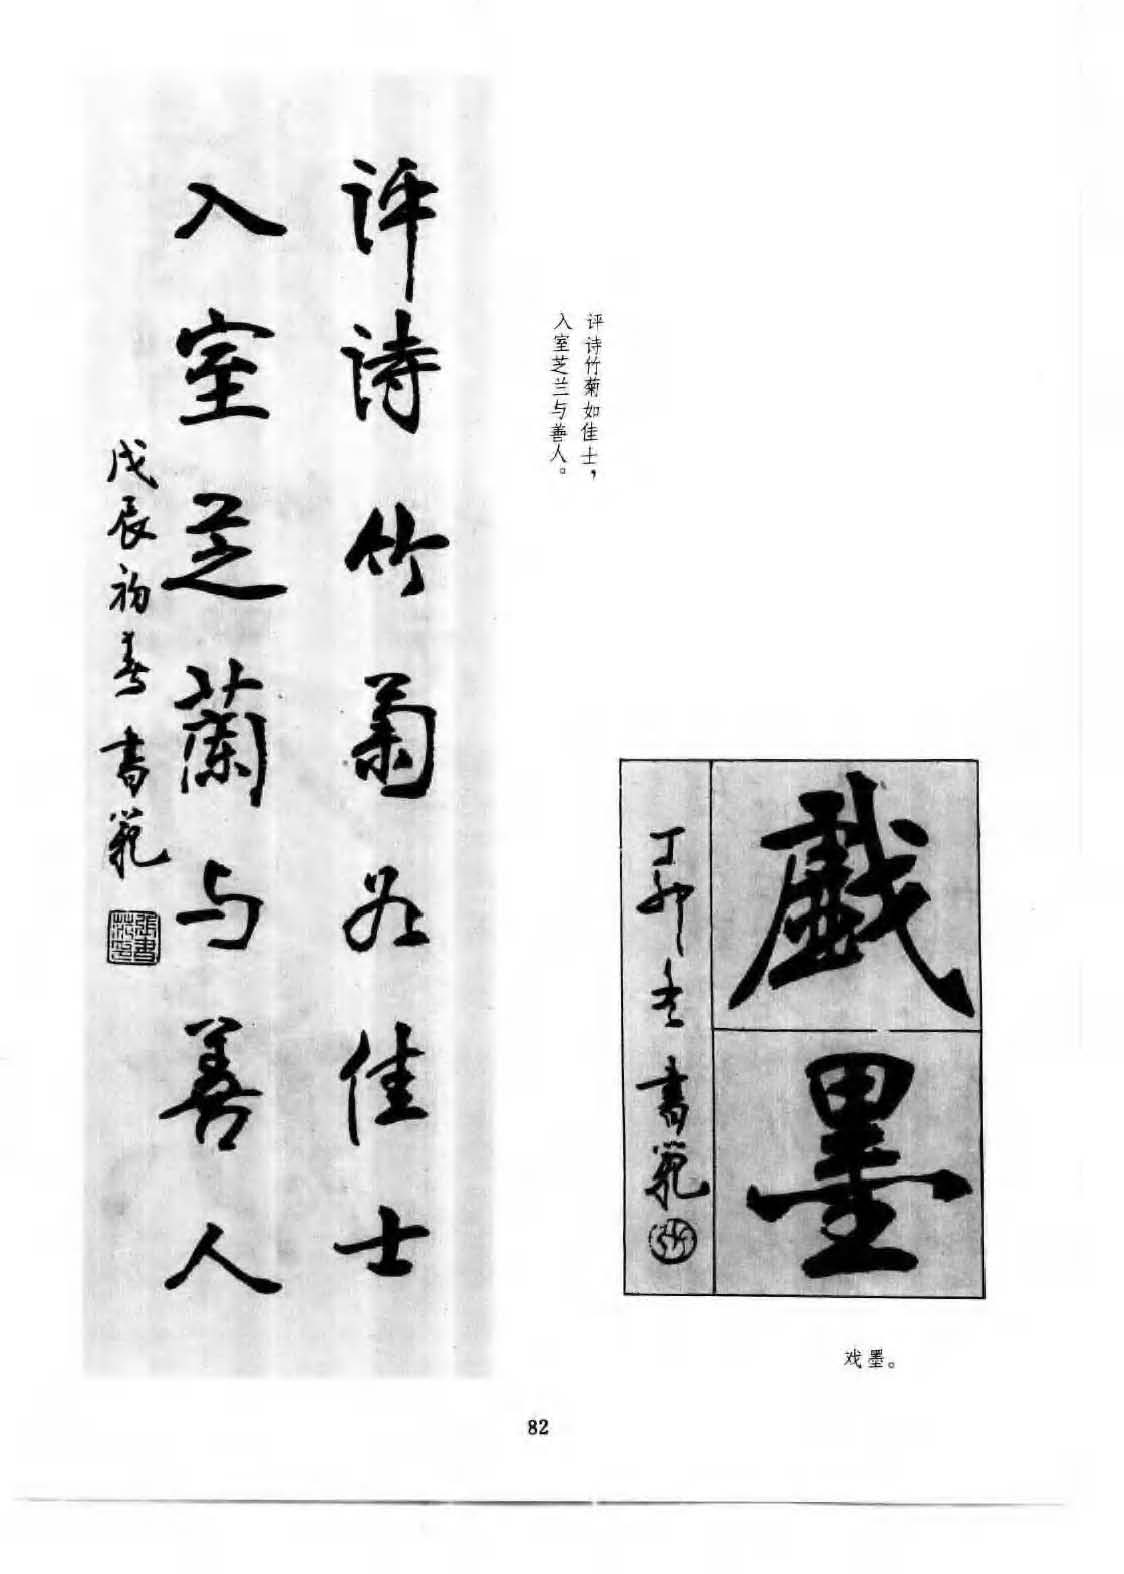 评诗竹菊如佳士
入室芝蘭与善人
戊辰初春書範
張書范印
评诗竹菊如佳士，
入室芝兰与善人。
戯墨
丁卯冬書範
戏墨。
82